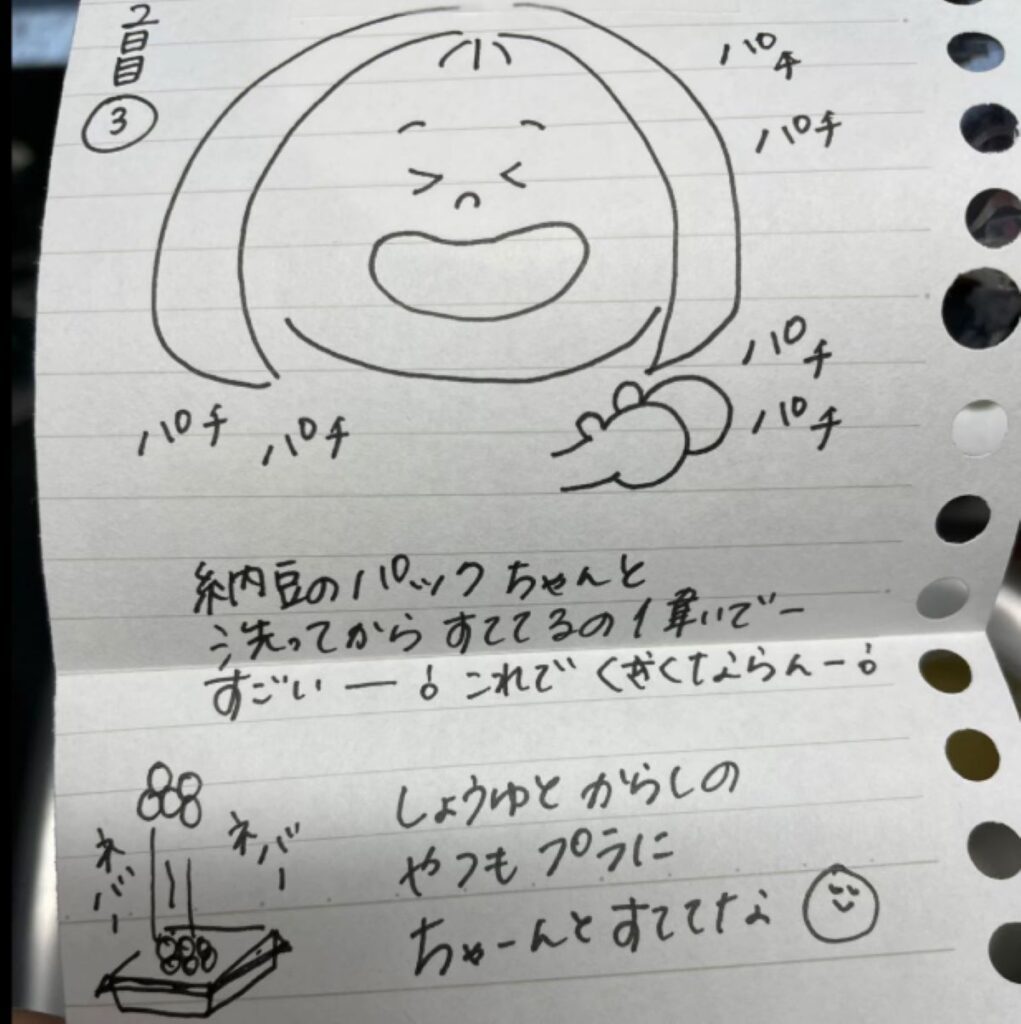 2日目
③
パチ
パチ
パチ
パチ
パチ
パチ
納豆のパックちゃんと
洗ってからすててるの偉いでー
すごいー！これでくさくならんー！
ネバー
ネバー
しょうゆとからしの
やつもプラに
ちゃーんとすててな